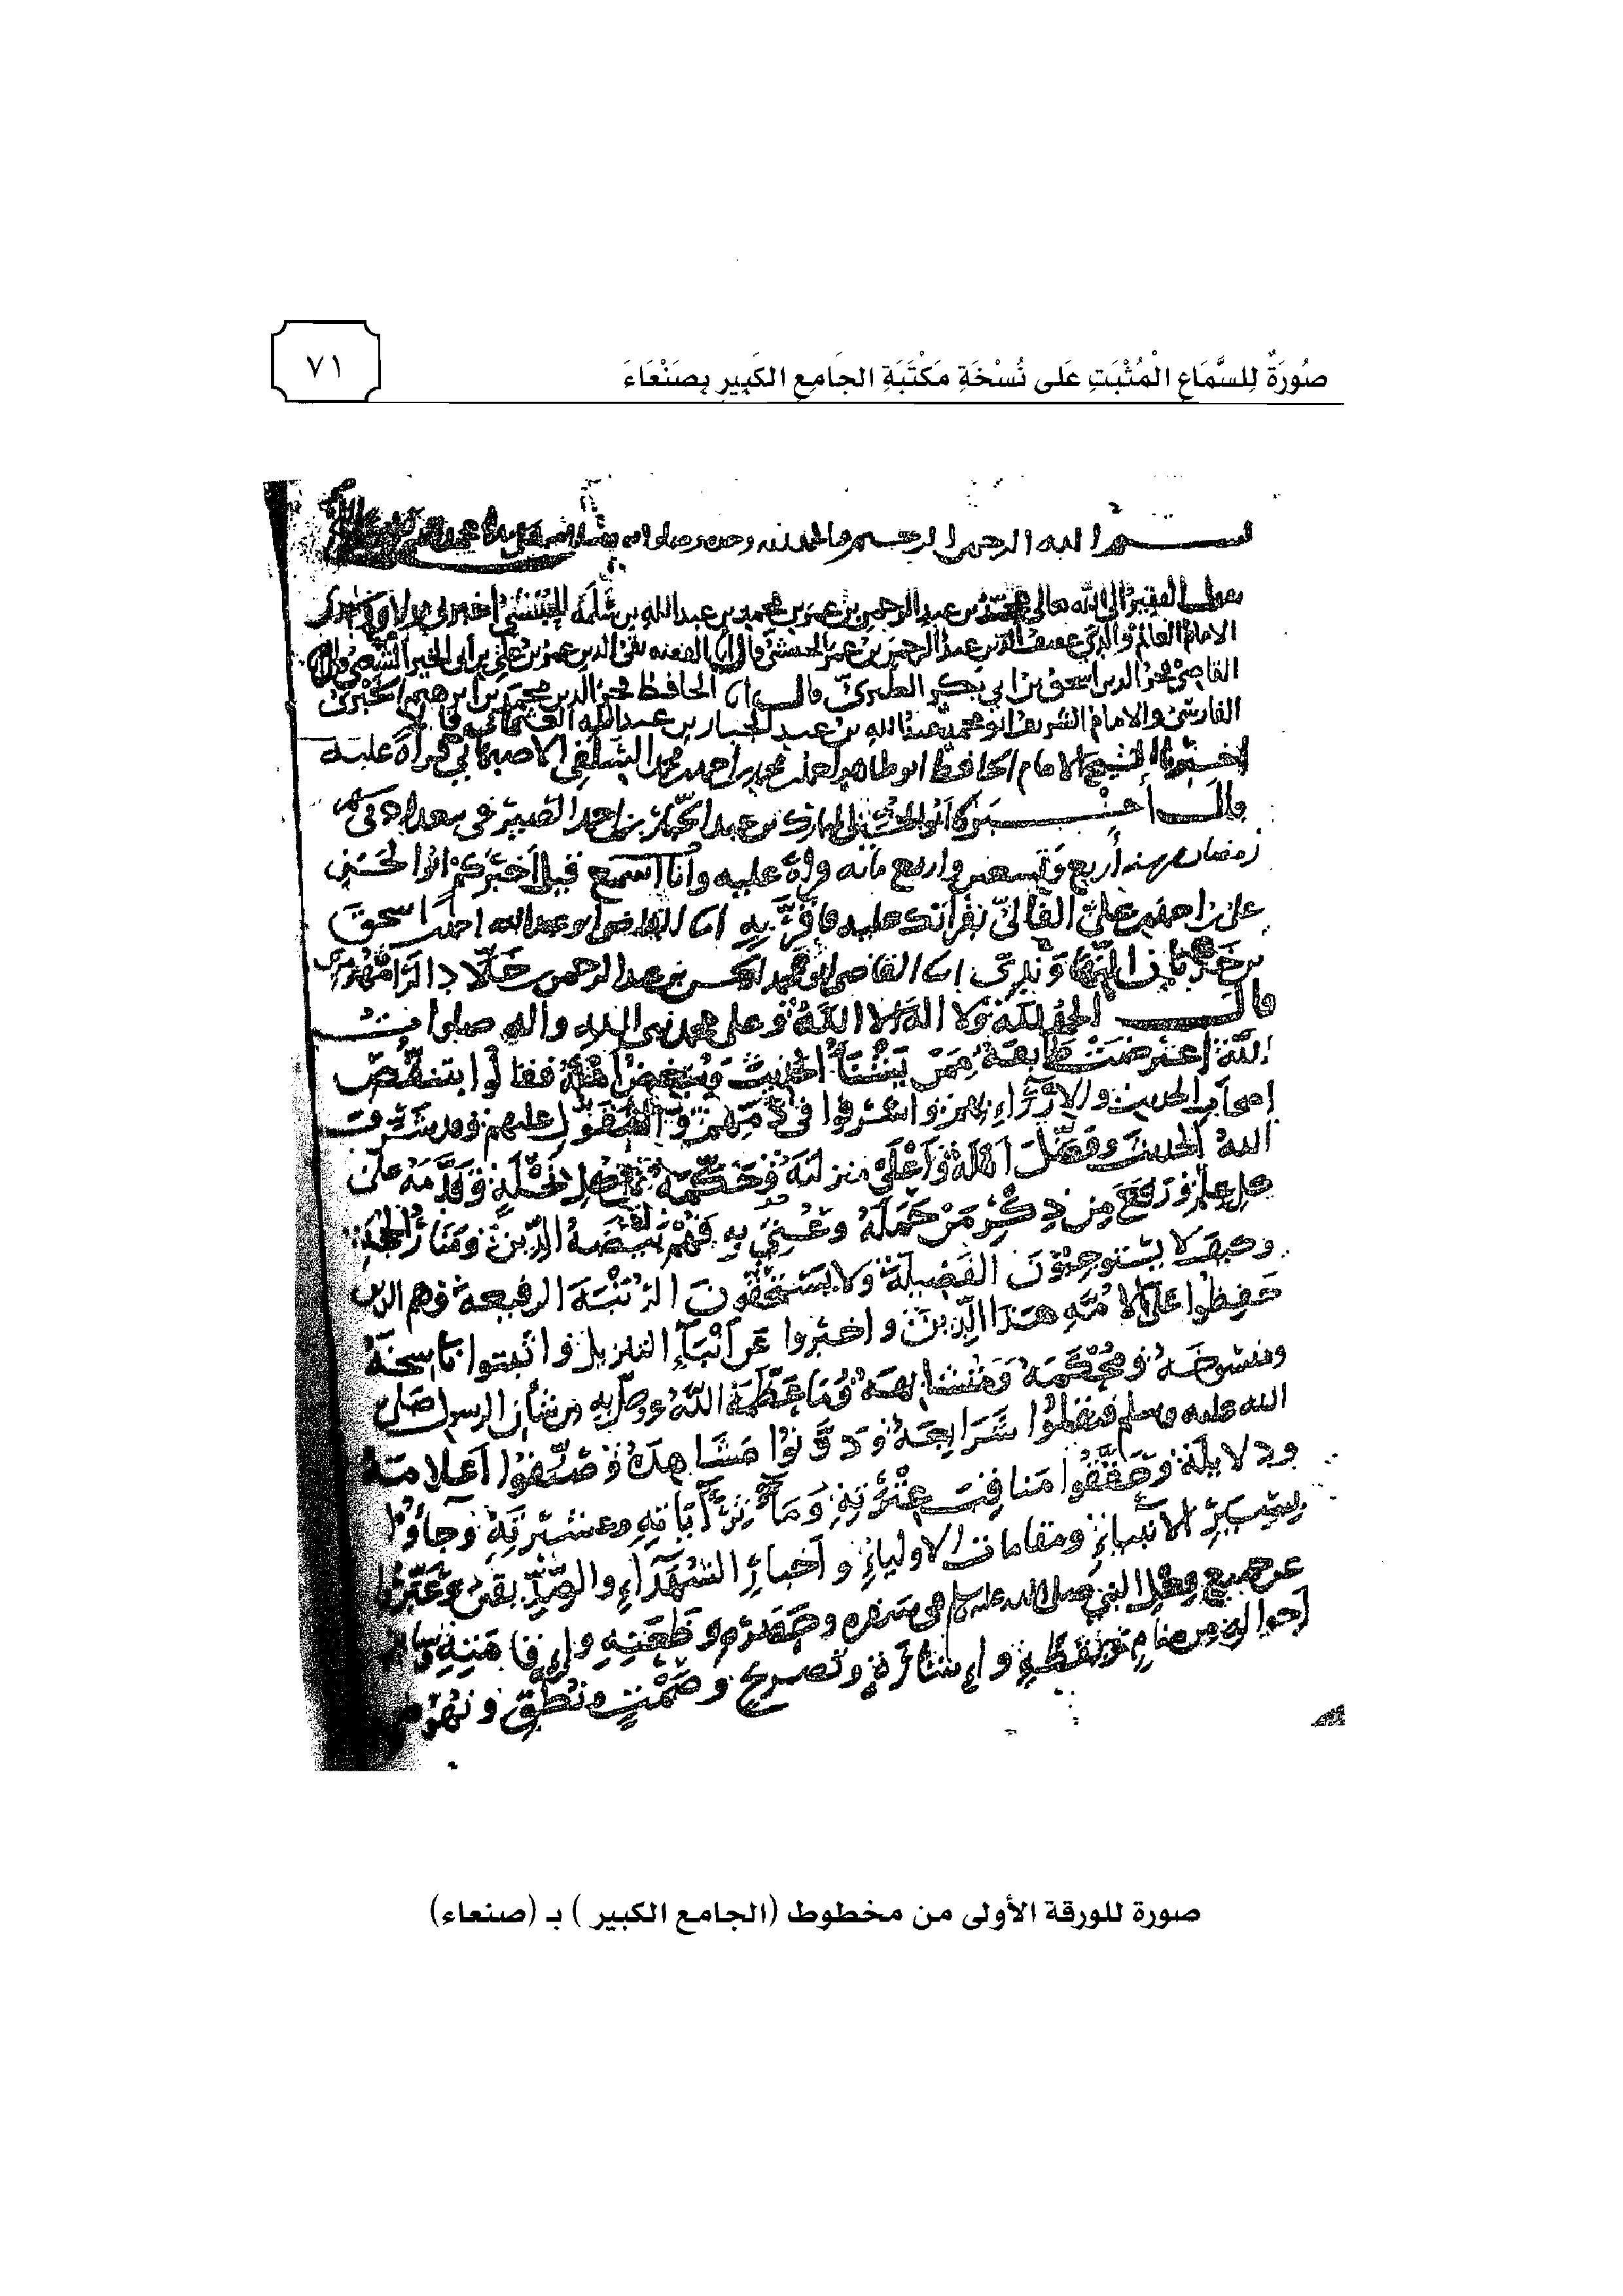 صُورَةٌ لِلسَّمَاعِ الْمُثْبَتِ عَلى نُسْخَةِ مَكْتَبَةِ الجَامِعِ الكَبِيرِ بِصَنْعَاءَ
٧١
بسم الله الرحمن الرحيم والحمد لله وحده وصلواته
يقول الفقير إلى الله تعالى محمد بن عبد الرحمن بن عمر بن محمد بن عبد الله بن سلمة الحبيشي أخبرني
الامام العالم والدي عفيف الدين عبد الرحمن بن عمر الحبيشي قال انا الفقيه تقي الدين عمر بن علي بن أبي الخير الشماخي
القاضي فخر الدين اسحق بن ابي بكر الطبري قال انا الحافظ فخر الدين محمد بن ابرهيم الخبري
الفارسي والامام الشريف ابو محمد عبد الله بن عبد الجبار بن عبد الله العثماني قالا
اخبرنا الشيخ الامام الحافظ ابو طاهر احمد بن محمد بن احمد بن محمد السلفي الاصبهاني قراة عليه
قال أخبرنا أبو الحسين المبارك بن عبد الجبار بن احمد الصيرفي ببغداد في
رمضان سنة أربع وتسعين واربع مائة قراة عليه وأنا أسمع قيل أخبركم ابوا الحسن
علي بن احمد بن علي الفالي بقراتك عليه فاقر به انا القاضي أبو عبد الله احمد بن اسحق
بن خربان النهاوندي انا القاضي ابو محمد الحسن بن عبد الرحمن بن خلاد الرامهرمزي
قال الحمد لله ولا اله الا الله وعلى محمد نبي الله واله صلوات
الله اعترضت طايفة ممن يشنأ الحديث ويبغض اهله فقالوا بتنقص
اصحاب الحديث والإزراء بهم واسرفوا في ذمهم والتقول عليهم وقد شرف
الله الحديث وفضل اهله وأعلى منزلته وحكمه على كل نحلة وقدمه على
كل علم ورفع من ذكر من حمله وعني به فهم بيضة الدين ومنار الحجة
وكيف لا يستوجبون الفضيلة ولا يستحقون الرتبة الرفيعة وهم الذين
حفظوا على الامة هذا الدين واخبروا عن أنباء التنزيل واثبتوا ناسخه
ومنسوخه ومحكمه ومتشابهه وما عظمه الله عز وجل به من شأن الرسول صلى
الله عليه وسلم فنقلوا شرايعه ودونوا مشاهده وصنفوا أعلامه
ودلايله وحققوا مناقب عترته ومآثر آبائه وعشيرته وجاؤا
بسير الأنبياء ومقامات الاولياء واخبار الشهداء والصديقين وعبروا
عن جميع فعل النبي صلى الله عليه وسلم في سفره وحضره وظعنه وإقامته وساير
أحواله من منام ويقظة وإشارة وتصريح وصمت ونطق ونهوض
صورة للورقة الأولى من مخطوط (الجامع الكبير ) بـ (صنعاء)